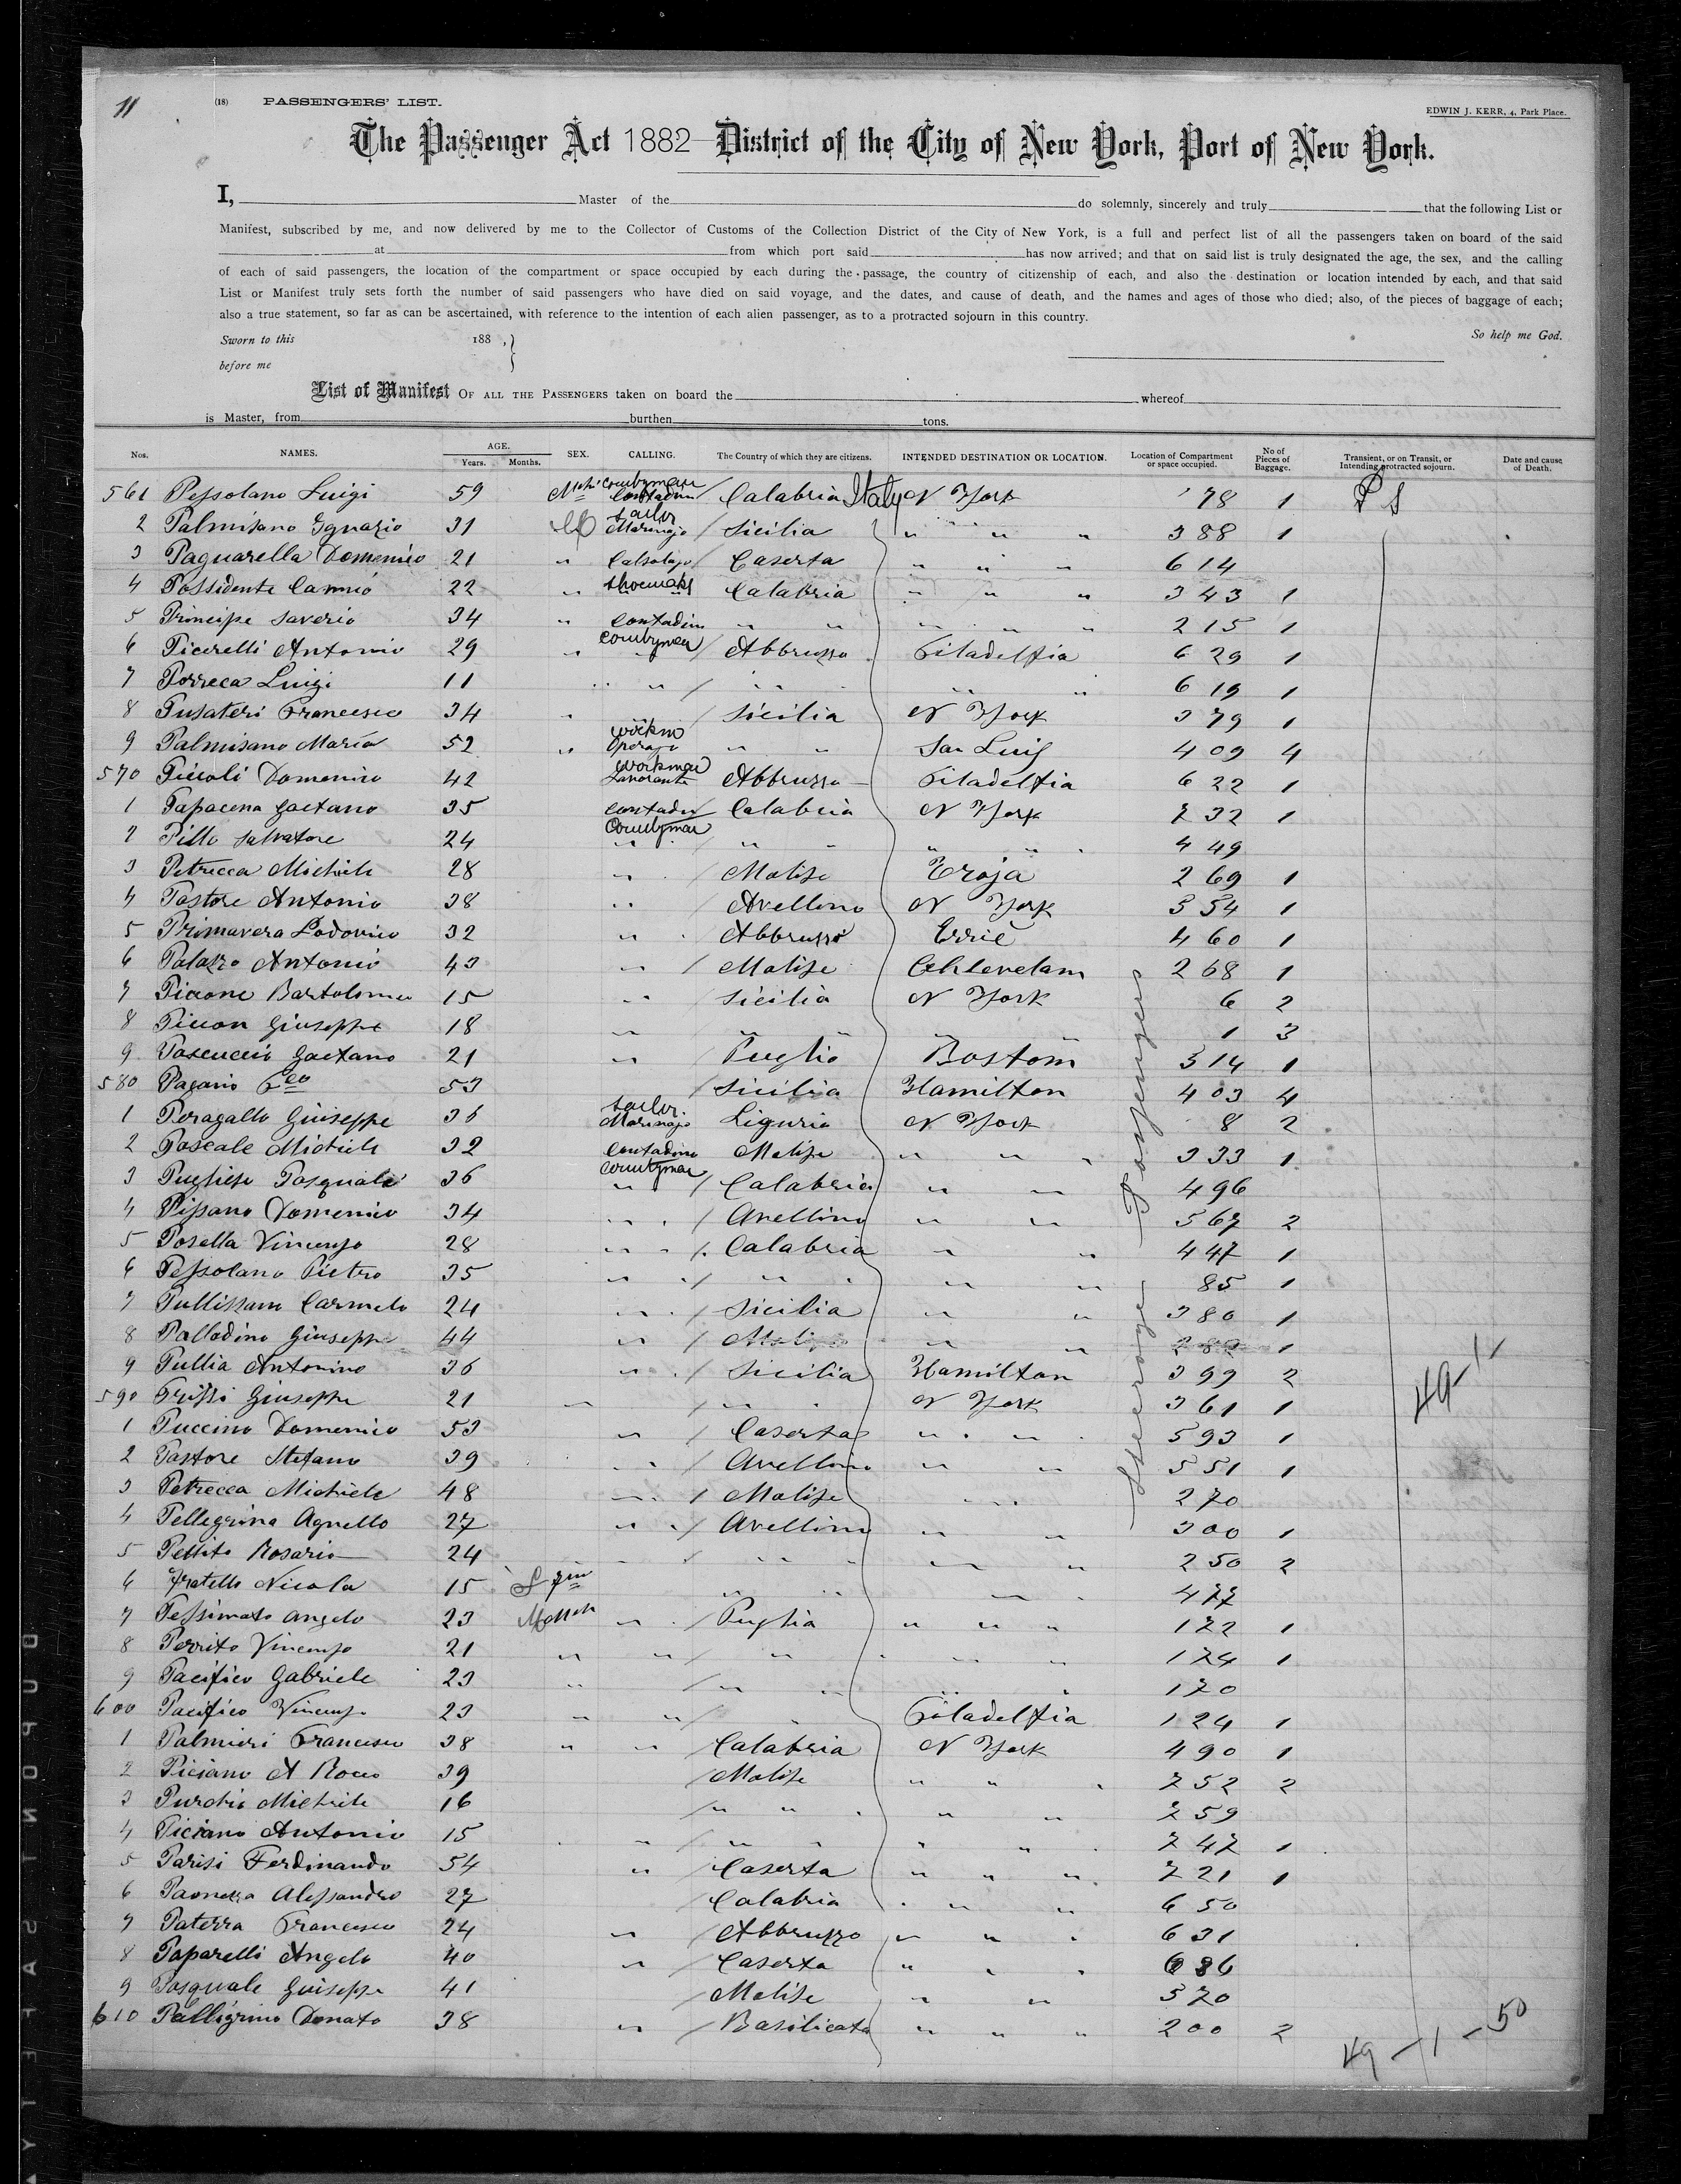 11
(18) PASSENGERS' LIST.
EDWIN J. KERR, 4, Park Place.
The Passenger Act 1882 District of the City of New York, Port of New York.
I, Master of the do solemnly, sincerely and truly that the following List or
Manifest, subscribed by me, and now delivered by me to the Collector of Customs of the Collection District of the City of New York, is a full and perfect list of all the passengers taken on board of the said
at from which port said has now arrived; and that on said list is truly designated the age, the sex, and the calling
of each of said passengers, the location of the compartment or space occupied by each during the passage, the country of citizenship of each, and also the destination or location intended by each, and that said
List or Manifest truly sets forth the number of said passengers who have died on said voyage, and the dates, and cause of death, and the names and ages of those who died; also, of the pieces of baggage of each;
also a true statement, so far as can be ascertained, with reference to the intention of each alien passenger, as to a protracted sojourn in this country.
Sworn to this 188 , } So help me God.
before me
List of Manifest OF ALL THE PASSENGERS taken on board the whereof
is Master, from burthen tons.
Nos. NAMES. AGE. Years. Months. SEX. CALLING. The Country of which they are citizens. INTENDED DESTINATION OR LOCATION. Location of Compartment or space occupied. No of Pieces of Baggage. Transient, or on Transit, or Intending protracted sojourn. Date and cause of Death.
561 Pessolano Luigi 59 countryman contadin / Calabria Italy N York 78 1 P S
2 Palmisano Ignazio 31 sailor Marinajo / Sicilia " " " 388 1
3 Paquarella Domenico 21 " Calsolajo / Caserta " " " 614
4 Possidente 22 " shoemaker / Calabria " " " 343 1
5 Principe Saverio 34 " contadin " " " " " 215 1
6 Picerelli Antonio 29 " countryman / Abbruzzo Filadelfia 629 1
7 Porreca Luigi 11 " " / " " " " 619 1
8 Pusateri Francesco 34 " / Sicilia N York 379 1
9 Palmisano Maria 52 " Operajo " " San Luis 409 4
570 Piccoli Domenico 42 workman Lavorante Abbruzzo Filadelfia 622 1
1 Papacena Gaetano 35 contadin Calabria N York 232 1
2 Pillo Salvatore 24 countryman " / " " " " 449
3 Petrecca Michele 28 " Molise Troja 269 1
4 Pastore Antonio 38 " Avellino N York 554 1
5 Primavera Lodovico 32 " Abbruzzo Errie 460 1
6 Palazzo Antonio 43 " / Molise 268 1
7 Picone Bartolomeo 15 " Sicilia N York 6 2
8 Piccon Giuseppe 18 " " " " " 1 3
9 Pascucci Gaetano 21 " Puglia Boston 314 1
580 Pagano Fco 53 / Sicilia Hamilton 403 4
1 Peragallo Giuseppe 36 sailor Marinajo Liguria N York 8 2
2 Pascale Michele 32 contadino Molise " " " 333 1
3 Pugliese Pasquale 36 countryman " / Calabria " " 496
4 Pissano Domenico 34 " / Avellino " " 567 2
5 Posella Vincenzo 28 " " / Calabria " " 447 1
6 Pessolano Pietro 35 " / " " " " 85 1
7 Pullissano Carmelo 24 " / Sicilia " " 380 1
8 Palladino Giuseppe 44 " / Molise " " 282 1
9 Pullia Antonino 36 " / Sicilia Hamilton 399 2
590 Prissi Giuseppe 21 " / " N York 361 1
1 Puccino Domenico 53 " / Caserta " " 593 1
2 Pastore Stefano 39 " / Avellino " " 551 1
3 Petrecca Michele 48 " / Molise " 270
4 Pellegrina Agnello 27 " / Avellino " " 300 1
5 Pettito Rosario 24 " / " " " " 250 2
6 Fratello Nicola 15 " " " 477
7 Pessimato Angelo 23 " / Puglia " " " 122 1
8 Perrito Vincenzo 21 " " / " " " 124 1
9 Pacifico Gabriele 23 " / " " " " 120
600 Pacifico Vincenzo 23 " " / " Filadelfia 124 1
1 Palmieri Francesco 38 " " Calabria N York 490 1
2 Piciano A Rocco 39 / Molise " " " 252 2
3 Michele 16 / " " " " 259
4 Piciano Antonio 15 " / " " " " 247 1
5 Parisi Ferdinando 54 " / Caserta " " " 221 1
6 Paonezza Alessandro 27 Calabria " " 650
7 Paterra Francesco 24 " / Abbruzzo " " " 631
8 Paparelli Angelo 40 " / Caserta " " " 686
9 Pasquale Guiseppe 41 Molise " " 570
610 Palligrino Donato 38 " / Basilicata " " " 200 2
Steerage Passengers
49-1
49 - 1 - 50